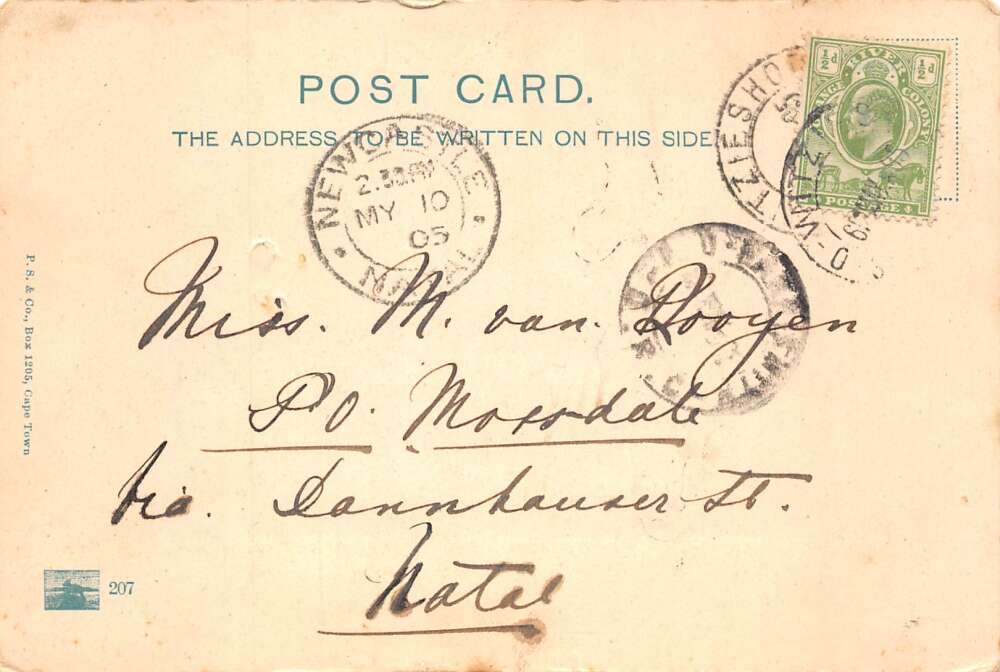 POST CARD.
THE ADDRESS TO BE WRITTEN ON THIS SIDE
½d ½d
RIVER COLONY
POSTAGE
NEWCASTLE
2.30AM
MY 10
05
NATAL
Miss. M. van. Rooyen
P.O.
via. Dannhauser St.
Natal
P. S. & Co., Box 1205, Cape Town
207